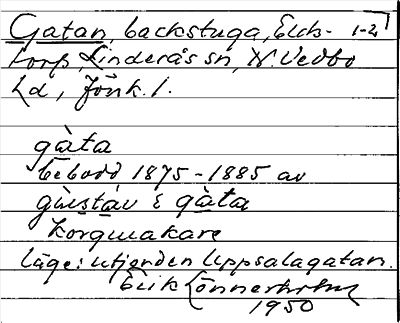 Gatan, backstuga, Ekh- 1-2
torp, Linderås sn, N. Vedbo
hd, Jönk. l.
gàta
bebodd 1875-1885 av
gùstav i gàta
Korgmakare
Läge: utefter den Uppsalagatan.
Erik Lönnerholm
1950